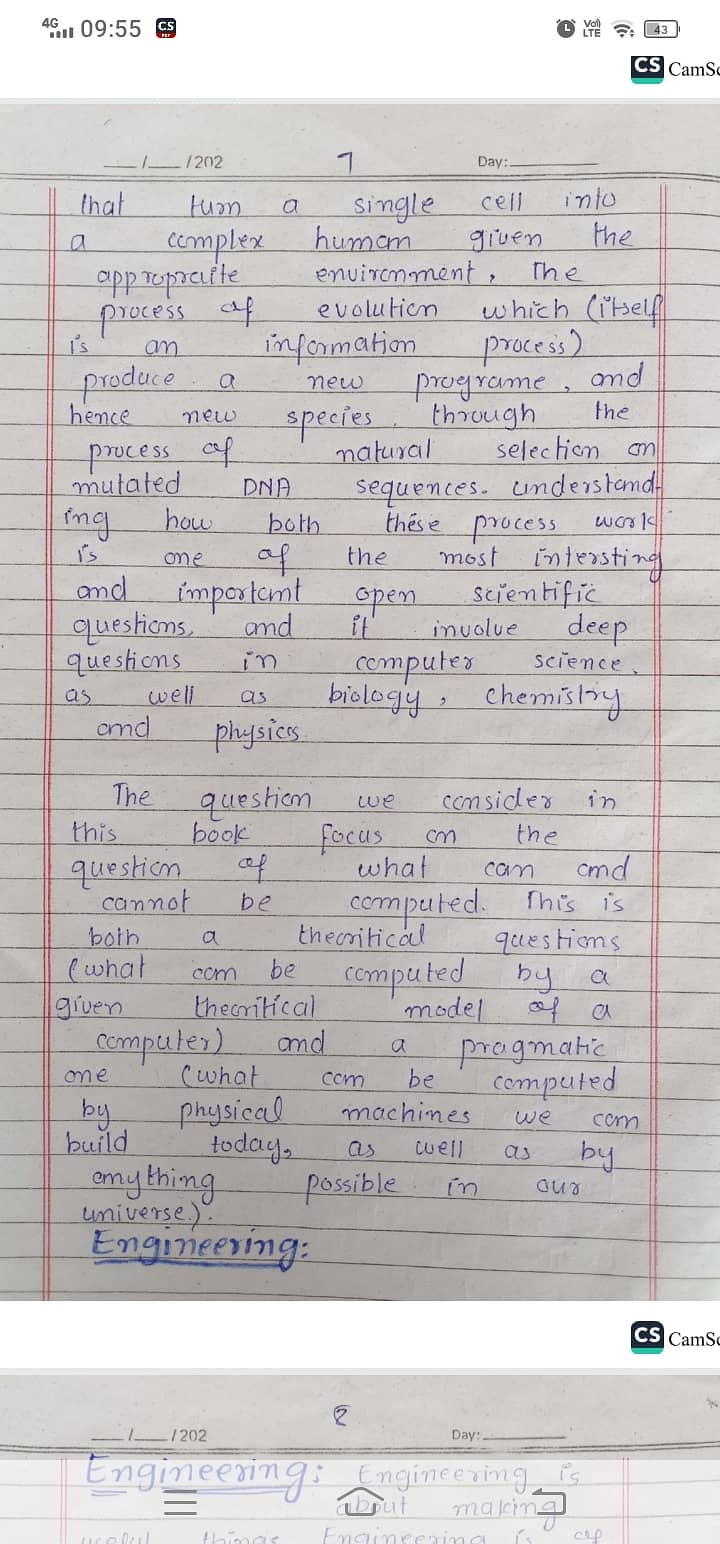 4G 09:55 CS PDF VoI) LTE 43
CS CamSc
__/__/202 7 Day:
that turn a single cell into
a complex human given the
appropraite environment, The
process of evolution which (itself
is an information process)
produce a new programe, and
hence new species through the
process of natural selection on
mutated DNA sequences. understand-
ing how both these process work
is one of the most intersting
and important open scientific
questions, and it involve deep
questions in computer science,
as well as biology, chemistry
and physics.
The question we consider in
this book focus on the
question of what can and
cannot be computed. This is
both a theoritical questions
(what can be computed by a
given theoritical model of a
computer) and a pragmatic
one (what can be computed
by physical machines we can
build today, as well as by
anything possible in our
universe.).
Engineering:
CS CamSc
__/__/202 8 Day:
Engineering: Engineering is
about making
useful things Engineering is